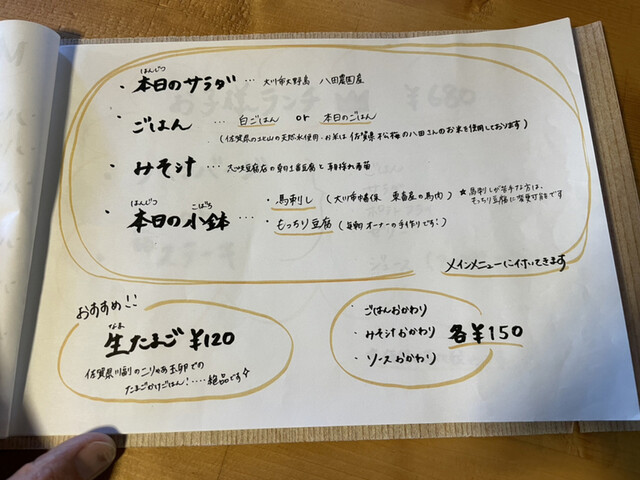 ほんじつ
・本日のサラダ … 大川市大野島 八田農園産
・ごはん … 白ごはん or 本日のごはん
(佐賀県の北山の天然水使用・お米は佐賀県松梅の八田さんのお米を使用しております)
・みそ汁 … 豆腐店の朝1番豆腐と朝採れ
ほんじつ こばち
・本日の小鉢
・馬刺し (大川市 産の馬肉) ★馬刺しが苦手な方は、
もっちり豆腐に変更可能です
・もっちり豆腐 (毎朝オーナーの手作りです!)
メインメニューに付いてきます
おすすめ!!
なま
生たまご ¥120
佐賀県川副の 玉卵での
たまごかけごはん! … 絶品です☆
・ごはんおかわり
・みそ汁おかわり 各¥150
・ソースおかわり